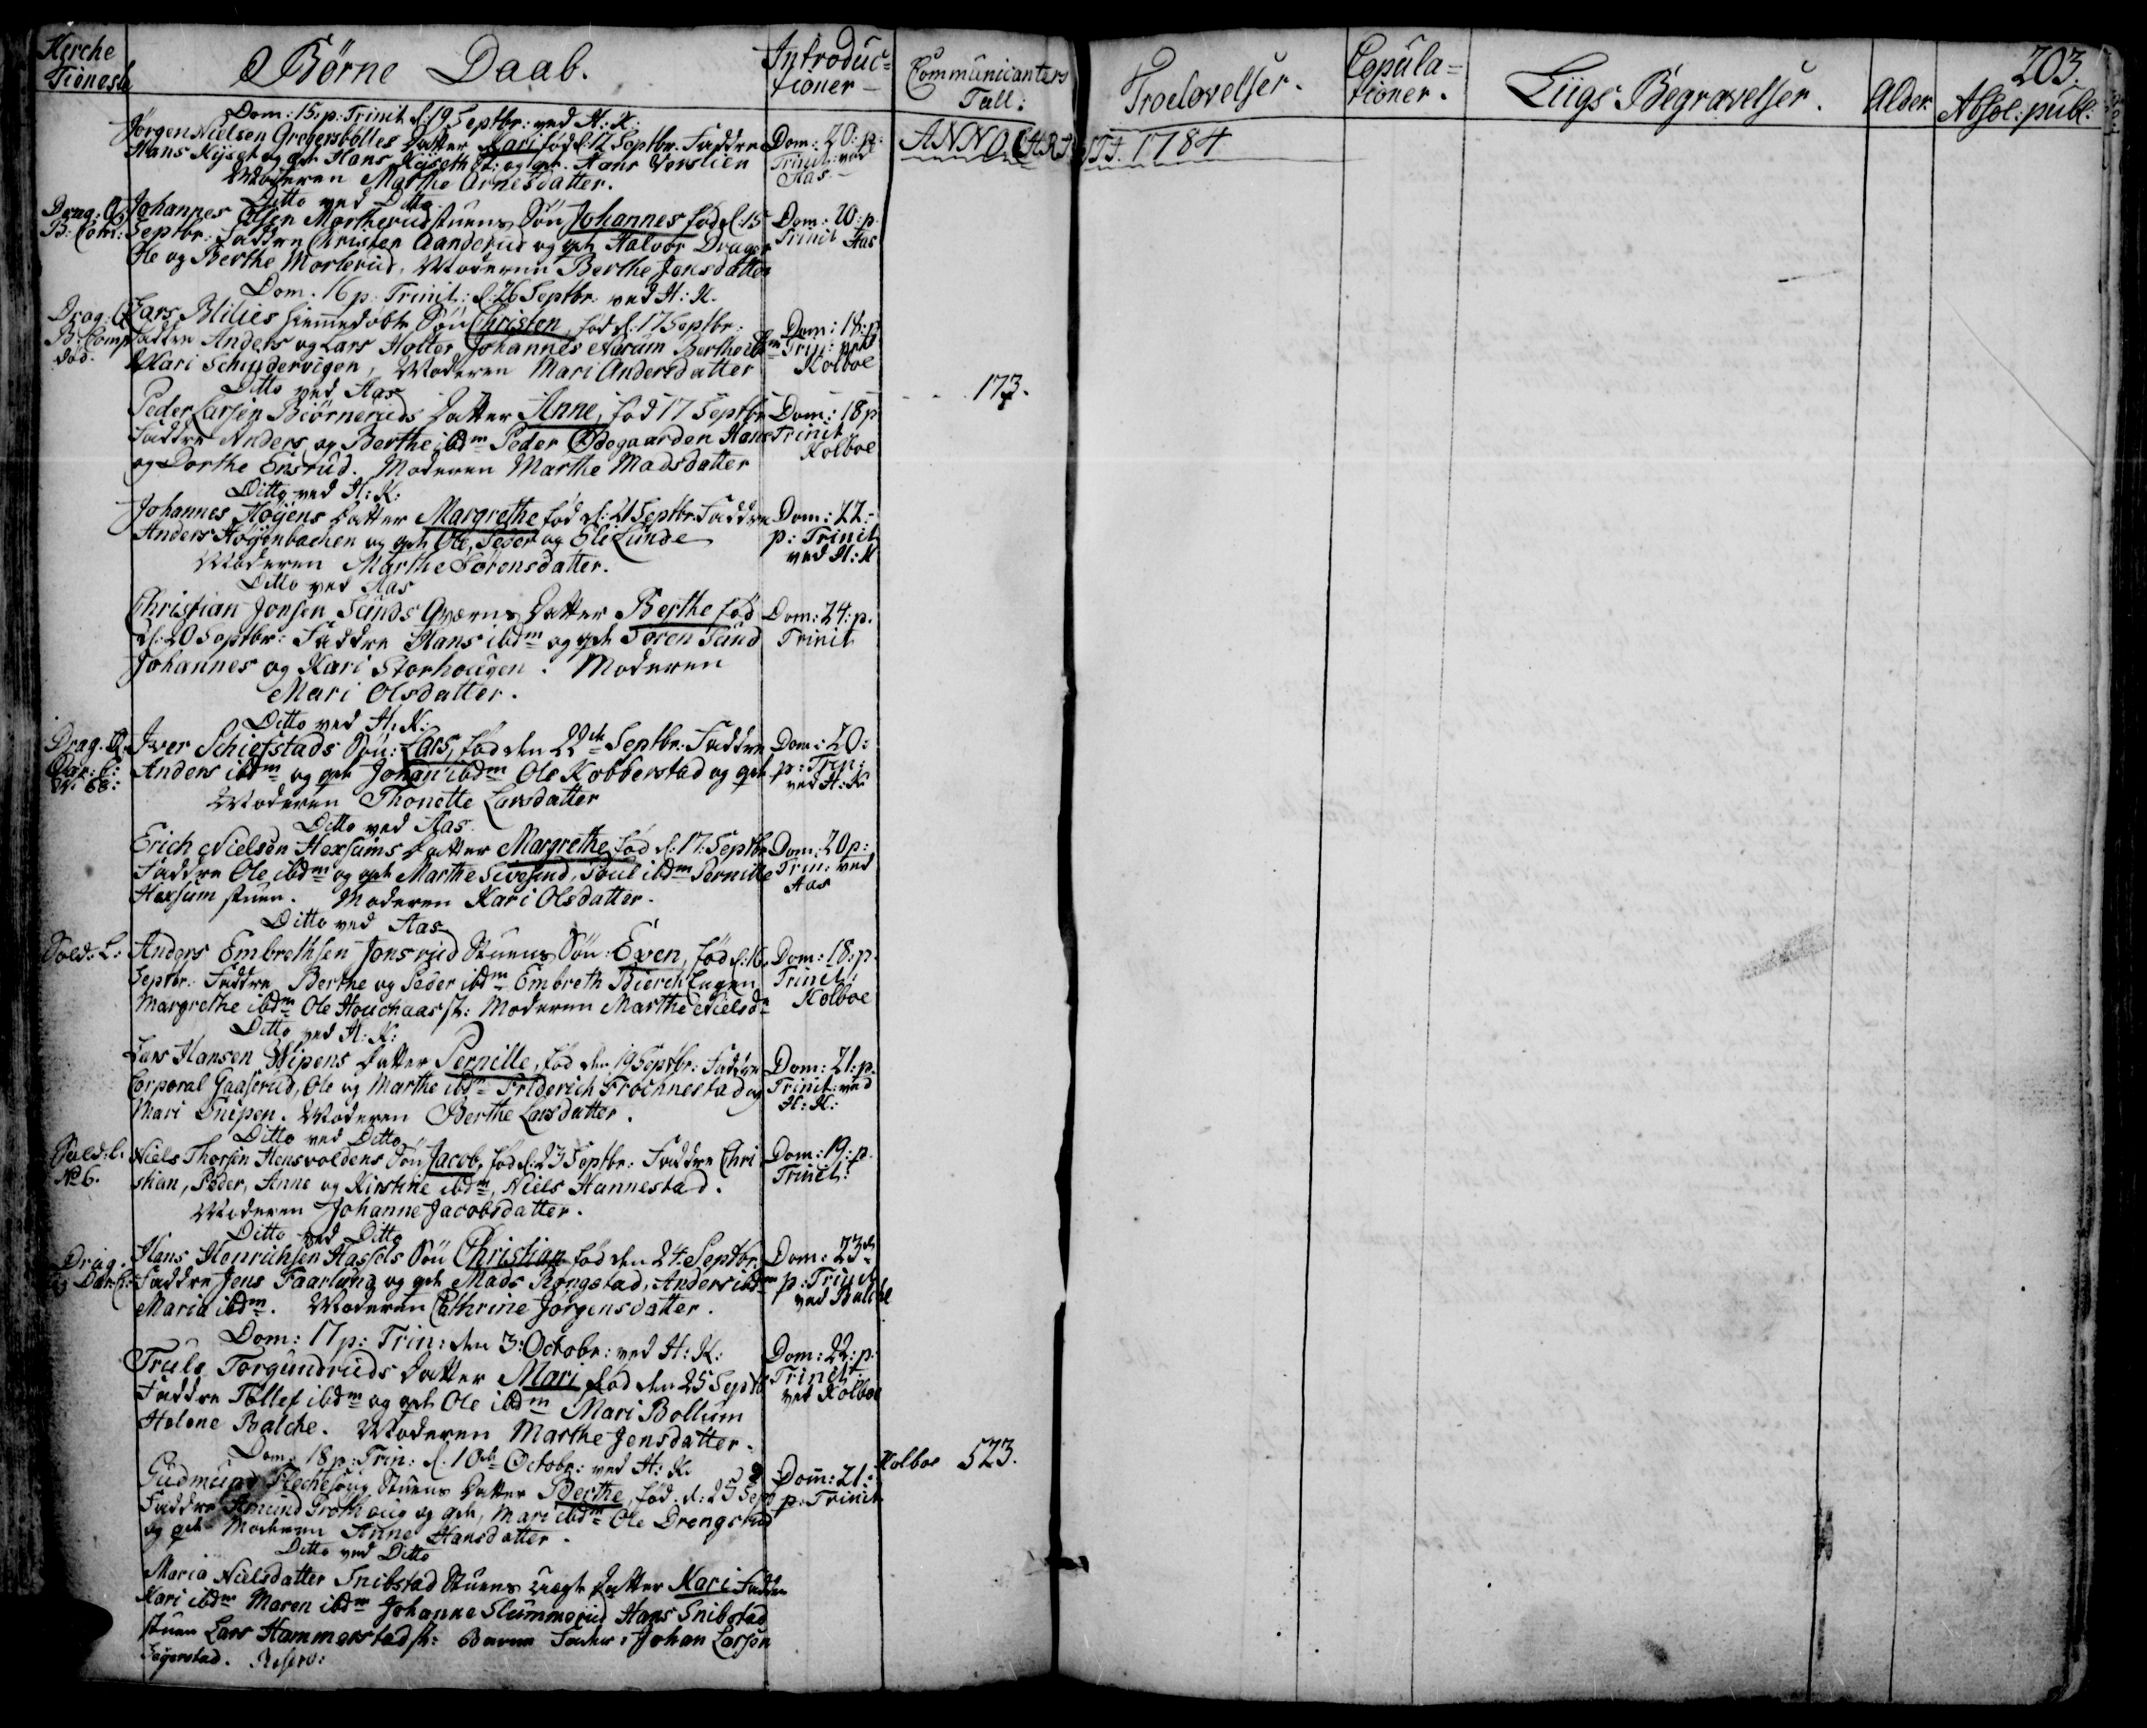 203.
Kerche Tieneste
Børne Daab.
Introductioner
Communicanters Tall:
Troelovelser.
Copulationer.
Liigs Begravelser.
Alder
Absol: publ:
ANNO CHRISTI. 1784
Dom: 15. p. Trinit d: 19 Septbr: ved H: K:
Jørgen Nielsen Grefersbølles datter Kari fød d: 12 Septbr. Faddre
Hans Kiiset og qde Hans Kiiseth og Hans Verslien
Moderen Marthe Arnesdatter.
Dom: 20: p: Trinit: ved Aas
Ditto ved Ditto
Drag: B: Com:
Johannes Olsen Martherud stuens Søn Johannes fød d: 15
Septbr: Faddre Christen Aanderud og qde Halvor Drager
Ole og Berthe Morterud, Moderen Berthe Jensdatter
Dom: 20: p. Trinit Aas
Dom. 16 p. Trinit: d: 26 Septbr. ved H: K.
Drag: B: Comp død.
Lars Bilies hiemmedøbte Søn Christen, fød d: 17 Septbr:
Faddre Anders og Lars Holter Johannes Narum Berthe ibdm
Kari Schindervigen, Moderen Mari Andersdatter
Dom: 18: p Trin: ved Kolboe
Ditto ved Aas
Peder Larsen Biørneruds datter Anne, fød 17 Septbr
Faddre Anders og Berthe ibdm Peder Ødegaarden Hans
og Dorthe Ensrud. Moderen Marthe Madsdatter
Dom: 18 p Trinit Kolboe
173.
Ditto ved H: K:
Johannes Høyens datter Margrethe fød d: 21 Septbr. Faddre
Anders Høyenbachen og qde Ole, Peder og Eli Lunde
Moderen Marthe Sørensdatter.
Dom: 22: p: Trinit ved H: K
Ditto ved Aas
Christian Jonsen Sunds Qværns datter Berthe fød
d: 20 Septbr: Faddre Hans ibdm og qde Søren Sund
Johannes og Kari Storhougen. Moderen
Mari Olsdatter.
Dom: 24: p. Trinit
Ditto ved H: K:
Drag. No 68:
Iver Schiefstads Søn: Lars, fød den 22de Septbr. Faddre
Anders ibdm og qde Johan ibdm Ole Kobberstad og qde
Moderen Thonette Larsdatter
Dom: 20: p: Trin: ved H: K
Ditto ved Aas.
Erich Nielsen Hexsums datter Margrethe fød d: 17: Septbr
Faddre Ole ibdm og qde Marthe Sivesind, Poul ibdm Pernille
Hexsum stuen. Moderen Kari Olsdatter.
Dom: 20 p: Trin: ved Aas
Ditto ved Aas
Sold: L:
Anders Embrethsen Jonsrud Stuens Søn: Even, fød d: 16.
Septbr. Faddre Berthe og Peder ibdm Embreth Bierch Engen
Margrethe ibdm Ole Houchaas st: Moderen Marthe Nielsd:
Dom: 18: p. Trinit: Kolboe
Ditto ved H: K:
Lars Hansen Snipens datter Pernille, fød den 19 Septbr: Faddre
Corporal Gaaserud, Ole og Marthe ibdm Friderich Frochnestad og
Mari Snipen. Moderen Berthe Larsdatter.
Dom: 21: p. Trinit: ved H: K:
Ditto ved Ditto
Sold: No 6.
Niels Thorsen Hensvoldens Søn Jacob, fød d: 23 Septbr: Faddre Chri
stian, Peder, Anne og Kirstine ibdm, Niels Hannestad.
Moderen Johanne Jacobsdatter.
Dom: 19: p. Trinit:
Ditto ved Ditto
Drag.
Hans Henrichsen Hassels Søn Christian fød den 24. Septbr.
Faddre Jens Faarlund og qde Mads Rongstad, Anders ibdm
Maria ibdm. Moderen Cathrine Jørgensdatter.
Dom: 23de p: Trinit ved Balche
Dom: 17 p: Trin: den 3: Octobr: ved H: K:
Truls Torgundruds datter Mari fød den 25 Septb
Faddre Tollef ibdm og qde Ole ibdm Mari Bollum
Helene Balche. Moderen Marthe Jensdatter.
Dom: 22: p: Trinit: ved Kolboe
Dom: 18 p: Trin: d. 10de Octobr: ved H: K.
Gudmund Stuens datter Berthe, fød. d: 25 Sept
Faddre Amund og qde, Mari ibdm Ole Drengstad
og qde Moderen Anne Hansdatter.
Dom: 21: p: Trinit
Kolboe 523.
Ditto ved Ditto
Maria Nielsdatter Snibstad Stuens uægte datter Kari Faddre
Kari ibdm Maren ibdm Johanne Slummerud Hans Snibstad
stuen Lars Hammerstad st: Barne Fader: Johan Larsen